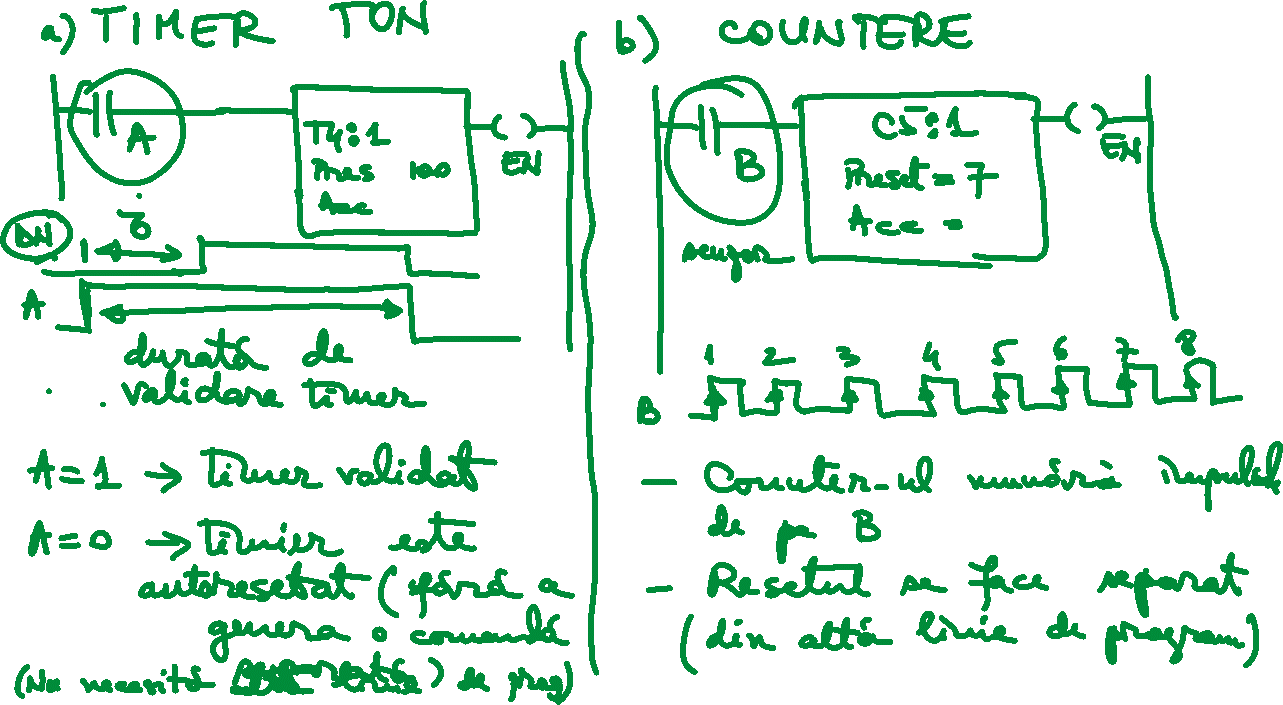 a) TIMER TON
A
T4:1
Pres 100
Acc
EN
DN
τ
A
durată de
validare timer
A=1 → timer validat
A=0 → timer este
autoresetat (fără a
genera o comandă
(Nu necesită de prog)
b) COUNTERE
B
senzor
C5:1
Preset = 7
Acc =
EN
1 2 3 4 5 6 7 8
B
- Counter-ul numără impulsuri
de pe B
- Resetul se face separat
(din altă linie de program)